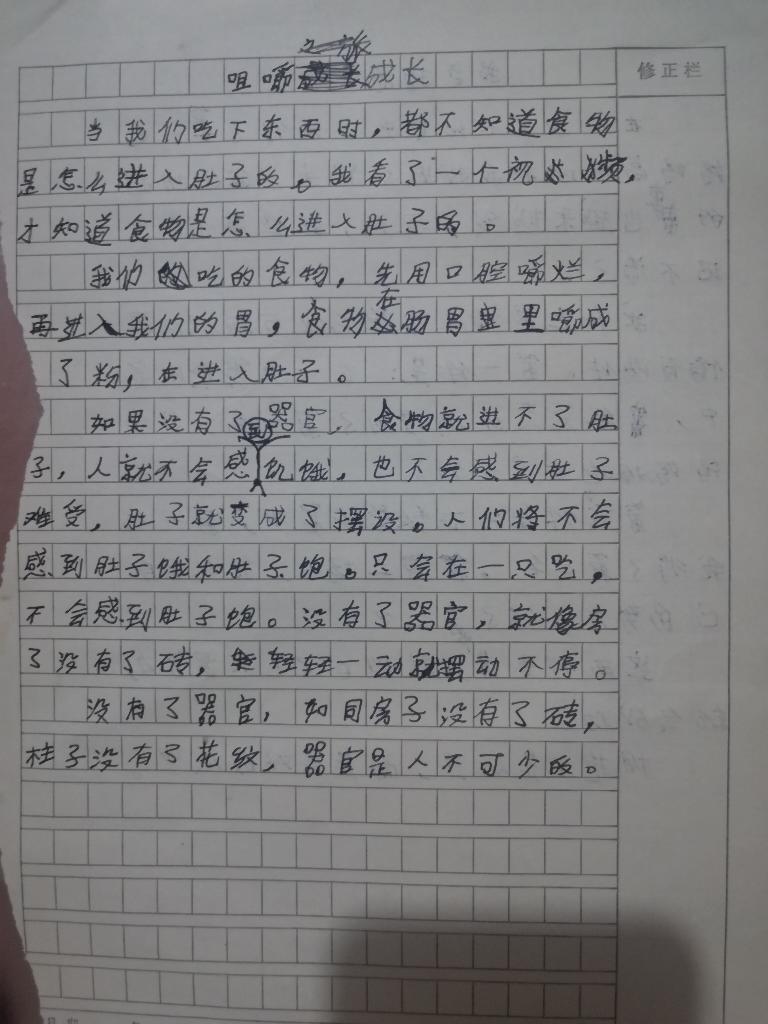 之旅
咀嚼成长
修正栏
当我们吃下东西时，都不知道食物
是怎么进入肚子的。我看了一个视频，
才知道食物是怎么进入肚子的。
我们吃的食物，先用口腔嚼烂，
再进入我们的胃，食物在肠胃里嚼成
了粉，在进入肚子。
如果没有了器官，食物就进不了肚
子，人就不会感到饥饿，也不会感到肚子
难受，肚子就变成了摆设。人们将不会
感到肚子饿和肚子饱。只会在一只吃，
不会感到肚子饱。没有了器官，就像房
了没有了砖，轻轻一动就摆动不停。
没有了器官，如同房子没有了砖，
柱子没有了花纹，器官是人不可少的。